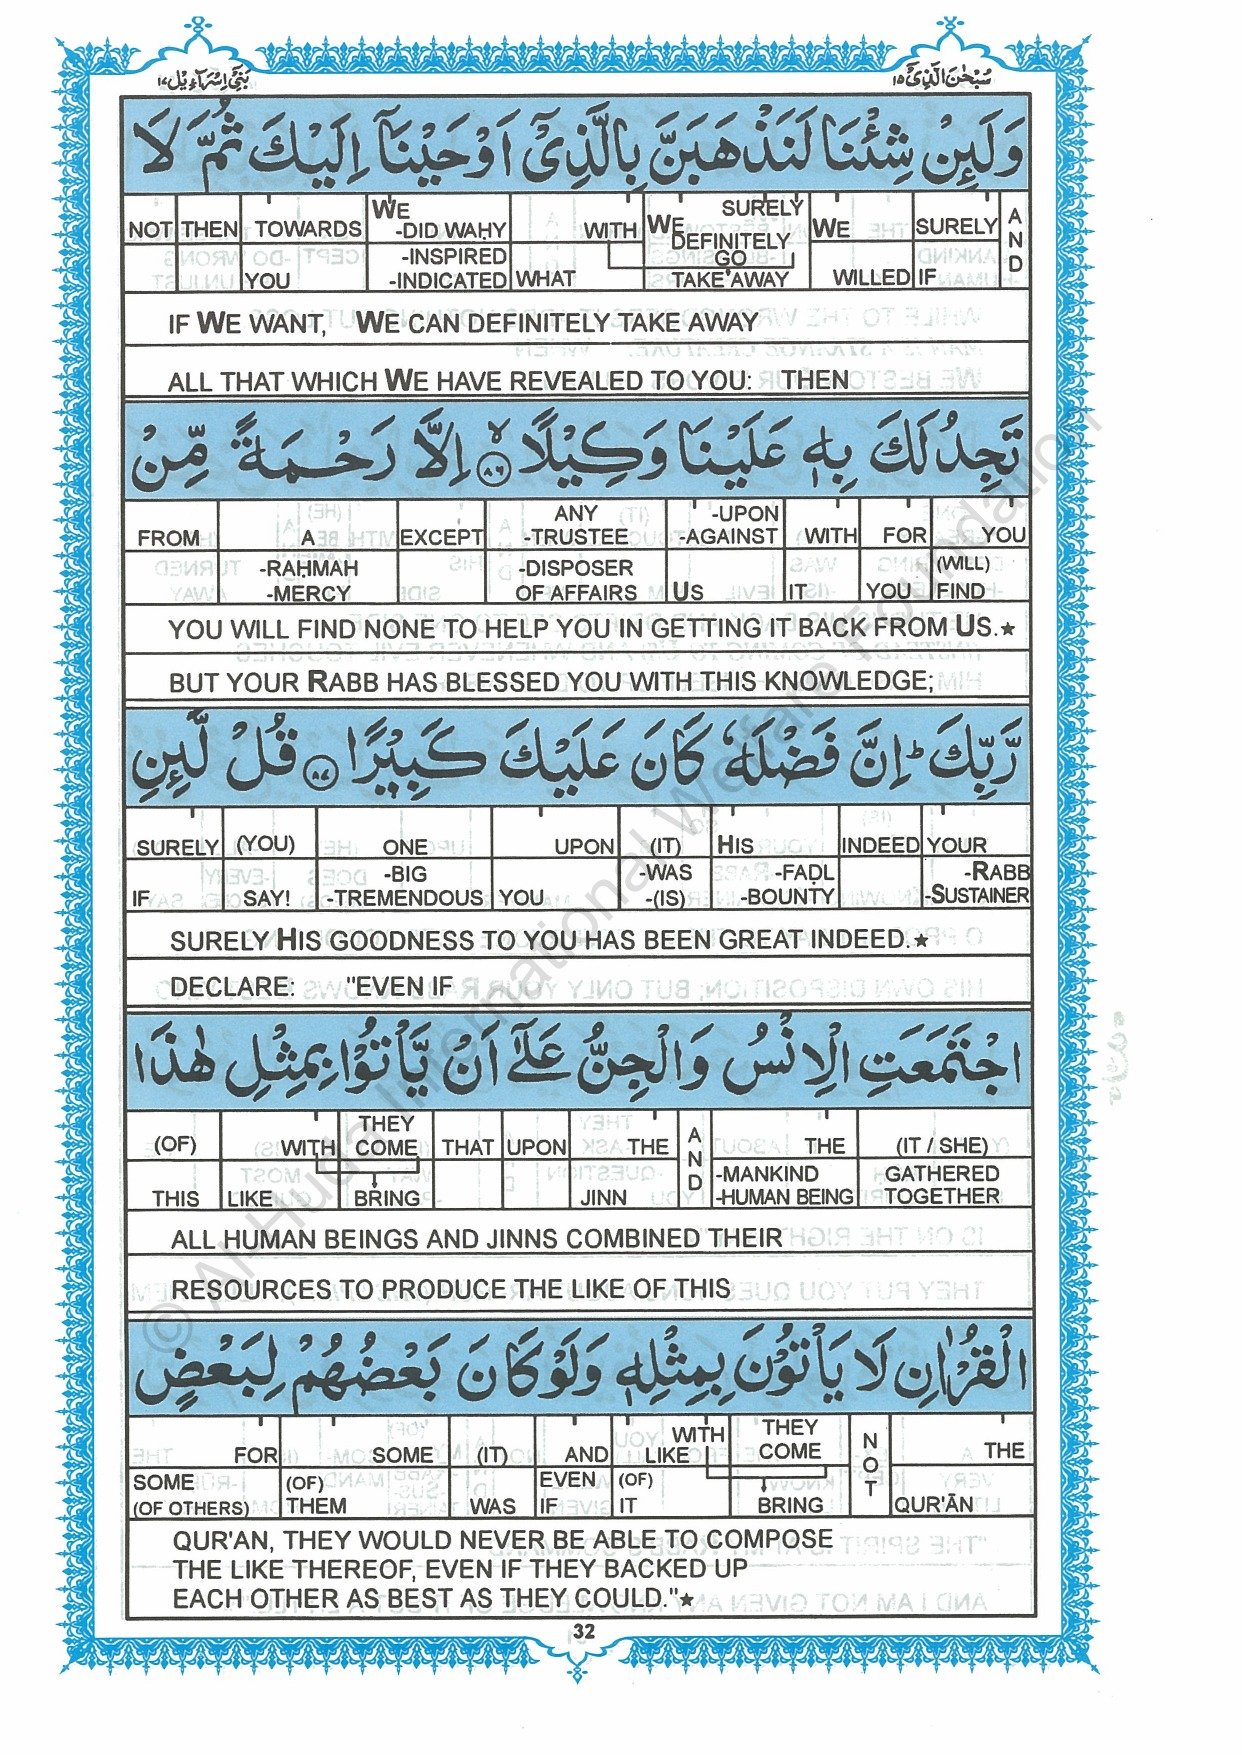 بَنِيۡٓ اِسۡرَآءِيۡل١٧ سُبۡحٰنَ الَّذِيۡٓ١٥
وَلَئِنۡ شِئۡنَا لَنَذۡهَبَنَّ بِالَّذِيۡٓ اَوۡحَيۡنَآ اِلَيۡكَ ثُمَّ لَا
NOT THEN TOWARDS WE -DID WAḤY WITH WE SURELY DEFINITELY WE SURELY AND
YOU -INSPIRED -INDICATED WHAT GO TAKE AWAY WILLED IF
IF WE WANT, WE CAN DEFINITELY TAKE AWAY
ALL THAT WHICH WE HAVE REVEALED TO YOU: THEN
تَجِدُ لَكَ بِهٖ عَلَيۡنَا وَكِيۡلًا ۙ‏﴿٨٦﴾ اِلَّا رَحۡمَةً مِّنۡ
FROM A EXCEPT ANY -TRUSTEE -UPON -AGAINST WITH FOR YOU
-RAḤMAH -MERCY -DISPOSER OF AFFAIRS US IT YOU (WILL) FIND
YOU WILL FIND NONE TO HELP YOU IN GETTING IT BACK FROM US.★
BUT YOUR RABB HAS BLESSED YOU WITH THIS KNOWLEDGE;
رَّبِّكَ‌ ؕ اِنَّ فَضۡلَهٗ كَانَ عَلَيۡكَ كَبِيۡرًا‏﴿٨٧﴾ قُلْ لَّئِنِ
SURELY (YOU) ONE UPON (IT) HIS INDEED YOUR
IF SAY! -BIG -TREMENDOUS YOU -WAS -(IS) -FAḌL -BOUNTY -RABB -SUSTAINER
SURELY HIS GOODNESS TO YOU HAS BEEN GREAT INDEED.★
DECLARE: "EVEN IF
اجۡتَمَعَتِ الۡاِنۡسُ وَالۡجِنُّ عَلٰٓى اَنۡ يَّاۡتُوۡا بِمِثۡلِ هٰذَا
(OF) WITH THEY COME THAT UPON THE AND THE (IT / SHE)
THIS LIKE BRING JINN -MANKIND -HUMAN BEING GATHERED TOGETHER
ALL HUMAN BEINGS AND JINNS COMBINED THEIR
RESOURCES TO PRODUCE THE LIKE OF THIS
الۡقُرۡاٰنِ لَا يَاۡتُوۡنَ بِمِثۡلِهٖ وَلَوۡ كَانَ بَعۡضُهُمۡ لِبَعۡضٍ
FOR SOME (IT) AND LIKE WITH THEY COME NOT THE
SOME (OF OTHERS) (OF) THEM WAS EVEN IF (OF) IT BRING QUR'ĀN
QUR'AN, THEY WOULD NEVER BE ABLE TO COMPOSE
THE LIKE THEREOF, EVEN IF THEY BACKED UP
EACH OTHER AS BEST AS THEY COULD."★
32
© Al-Huda International Welfare Foundation